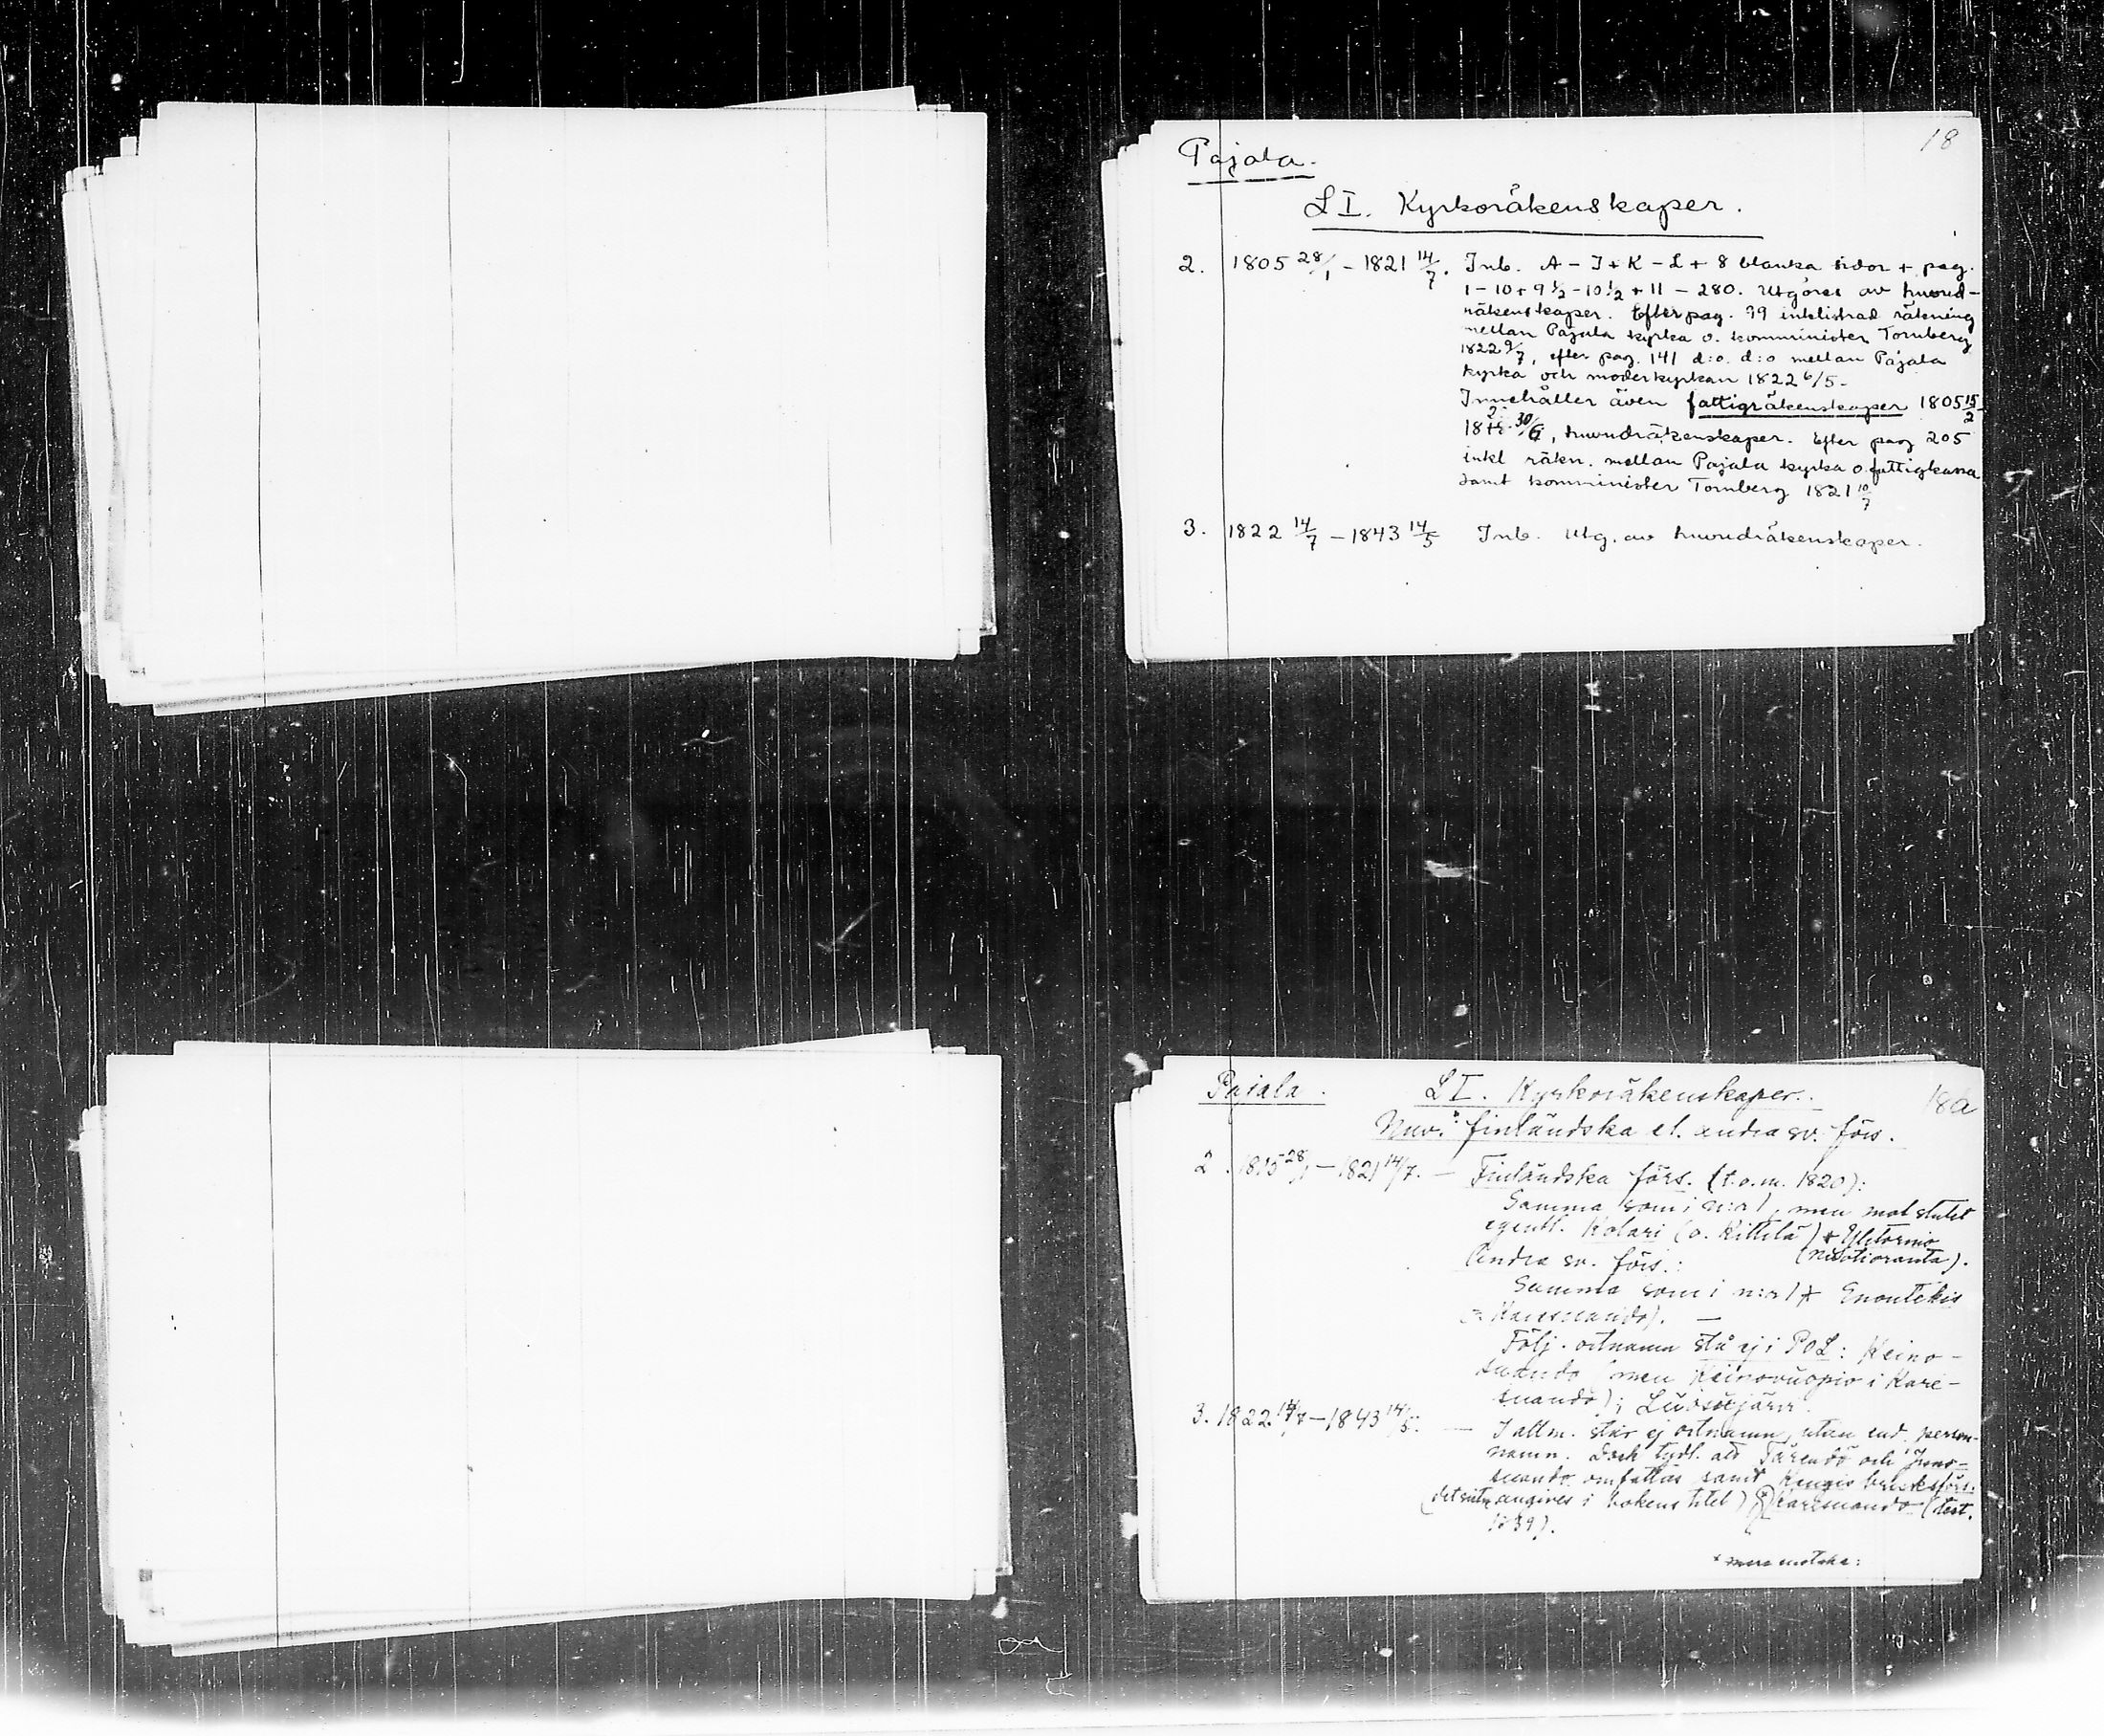 18
Pajala.
L I. Kyrkoräkenskaper.
2. 1805 28/1 - 1821 14/7. Inb. A - J + K - L + 8 blanka sidor + pag.
1 - 10 + 9 1/2 - 10 1/2 + 11 - 280. Utgöres av huvud-
räkenskaper. Efter pag. 99 inklistrad räkning
mellan Pajala kyrka o. komminister Tornberg
1822 9/7, efter pag. 141 d:o. d:o mellan Pajala
kyrka och moderkyrkan 1822 6/5 -
Innehåller även fattigräkenskaper 1805 15/2 -
30/6, huvudräkenskaper. Efter pag 205
inkl räkn. mellan Pajala kyrka o. fattigkassa
samt komminister Tornberg 1821 10/7
3. 1822 14/7 - 1843 14/5 Inb. Utg. av huvudräkenskaper.
Pajala. L I. Kyrkoräkenskaper. 18a
Nuv. finländska el. andra sv. förs.
2. 1805 28/1 - 1821 14/7. — Finländska förs. (t.o.m. 1820):
Samma som i n:o 1, men mot slutet
egentl. Kolari (o. Kittilä) + Ylitornio
Andra sv. förs.:
Samma som i n:o 1 + Enontekis
= Karesuando). —
Följ. ortnamn stå ej i POL: Keino-
suando (men Keinovuopio i Kare-
suando);
3. 1822 14/7 - 1843 14/5. — I allm. står ej ortnamn, utan end. person-
namn. Dock tydl. att Tärendö och Juno-
suando omfattas samt Kengis bruksförs.
angives i bokens titel) Karesuando (test.
1839).